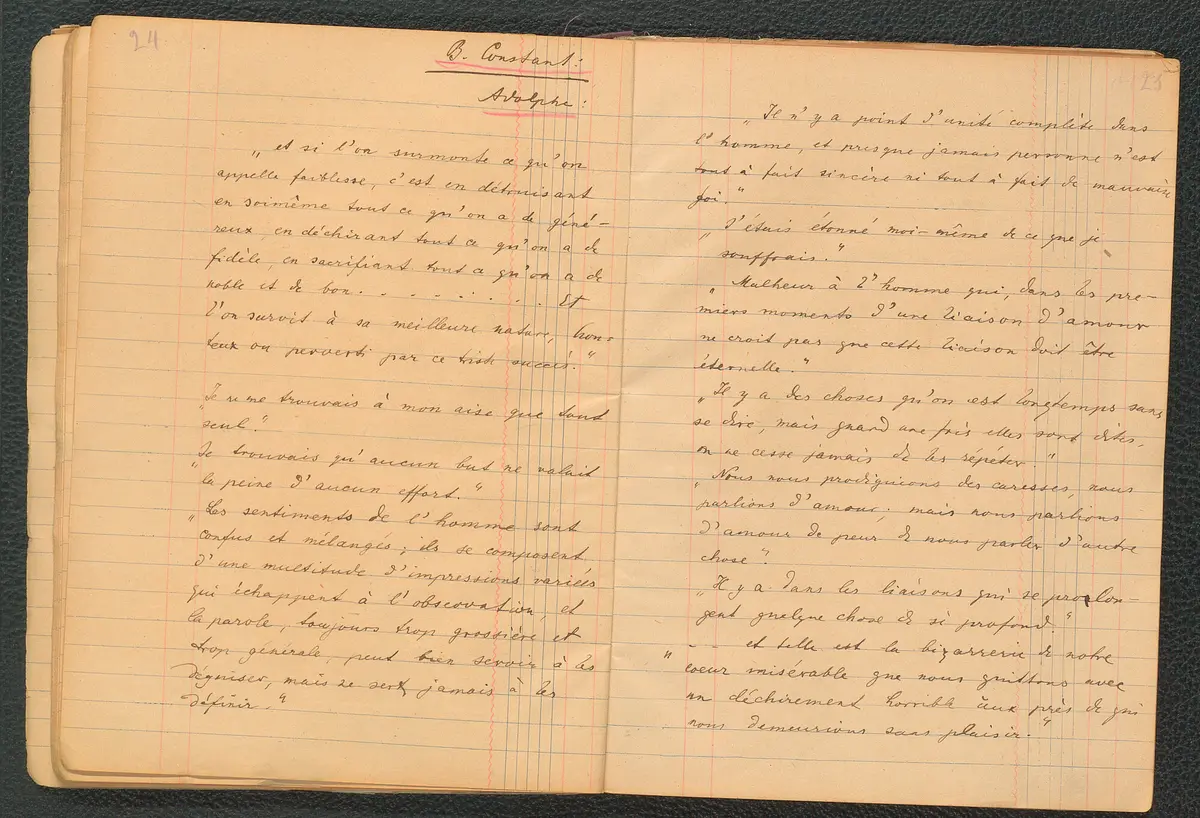 24
B. Constant:
Adolphe:
„et si l'on surmonte ce qu'on
appelle faiblesse, c'est en détruisant
en soimême tout ce qu'on a de géné-
reux, en déchirant tout ce qu'on a de
fidèle, en sacrifiant tout ce qu'on a de
noble et de bon. . . . . . . . . Et
l'on survit à sa meilleure nature, hon-
teux ou perverti par ce triste succès."
„Je ne me trouvais à mon aise que tout
seul."
„Je trouvais qu'aucun but ne valait
la peine d'aucun effort."
„Les sentiments de l'homme sont
confus et mélangés; ils se composent
d'une multitude d'impressions variées
qui échappent à l'observation, et
la parole, toujours trop grossière et
trop générale, peut bien servir à les
désigner, mais ne sert jamais à les
définir."
25
„Il n'y a point d'unité complète dans
l'homme, et presque jamais personne n'est
tout à fait sincère ni tout à fait de mauvaise
foi."
„J'étais étonné moi-même de ce que je
souffrais."
„Malheur à l'homme qui, dans les pre-
miers moments d'une liaison d'amour
ne croit pas que cette liaison doit être
éternelle."
„Il y a des choses qu'on est longtemps sans
se dire, mais quand une fois elles sont dites,
on ne cesse jamais de les répéter."
„Nous nous prodiguions des caresses, nous
parlions d'amour; mais nous parlions
d'amour de peur de nous parler d'autre
chose".
„Il y a dans les liaisons qui se prolon-
gent quelque chose de si profond."
„ - - et telle est la bizarrerie de notre
coeur misérable que nous quittons avec
un déchirement horrible ceux près de qui
nous demeurions sans plaisir."